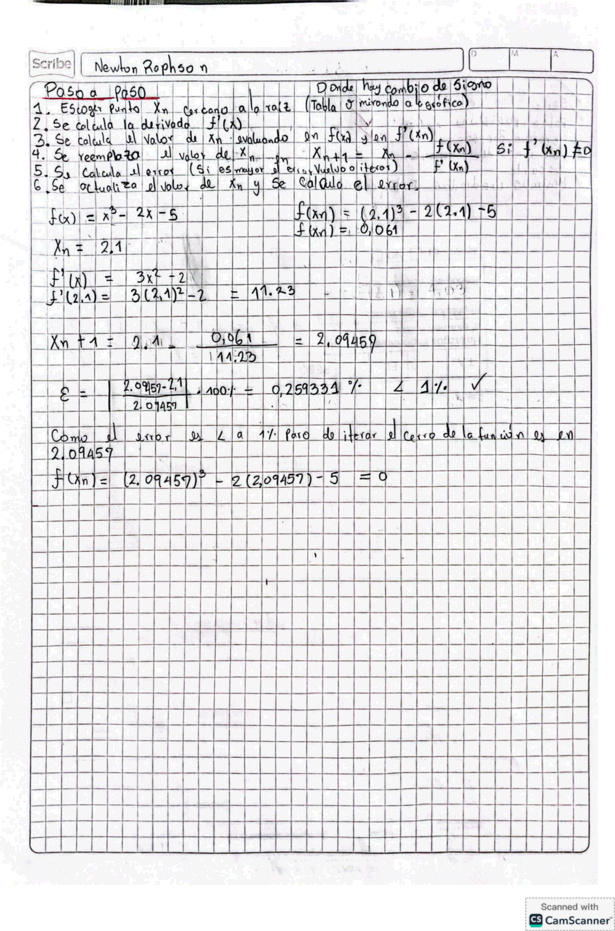 Scribe
Newton Raphson
D M A
Paso a Paso
Donde hay cambio de signo
(Tabla o mirando a la gráfica)
1. Escoger Punto Xn cercano a la raiz
2. Se calcula la derivada f'(x)
3. Se calcula el valor de Xn evaluando en f(x) y en f'(xn)
4. Se reemplaza el valor de Xn en Xn+1 = Xn - f(xn) / f'(xn) Si f'(xn) ≠ 0
5. Se calcula el error (Si es mayor el error vuelvo a iterar)
6. Se actualiza el valor de Xn y se calcula el error.
f(x) = x³ - 2x - 5
f(xn) = (2.1)³ - 2(2.1) - 5
f(xn) = 0,061
Xn = 2.1
f'(x) = 3x² - 2
f'(2,1) = 3(2,1)² - 2 = 11.23
Xn+1 = 2.1 - 0,061 / 11.23 = 2.09459
ε = | 2.09457-2,1 / 2.09457 | · 100% = 0,259331 % < 1% ✓
Como el error es < a 1% paro de iterar el cerro de la función es en
2.09459
f(xn) = (2.09457)³ - 2(2,09457) - 5 = 0
Scanned with
CS CamScanner